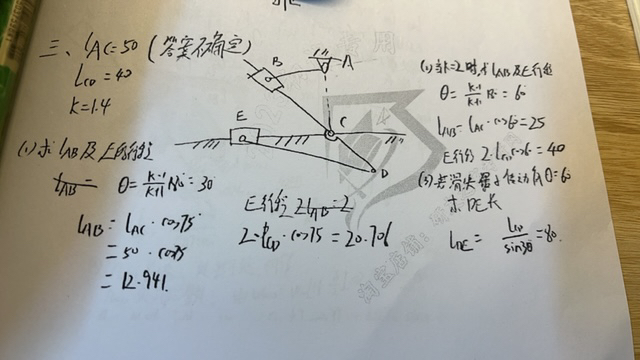 三、lAC=50 (答案不确定)
LCD=40
K=1.4
(1) 求lAB及E的行程
θ=K-1/K+1 180°=30°
lAB=lAC·cos75°
=50·cos75
=12.941
B
A
E
C
D
E行程
2·lCD·cos75=20.706
(2) 当k=2时,求lAB及E行程
θ=K-1/K+1 180°=60
lAB=lAC·cos60=25
E行程 2·lCD·cos60=40
(3) 若滑块最小传动角θ=60
求DE长
lDE=LCD/sin30=80